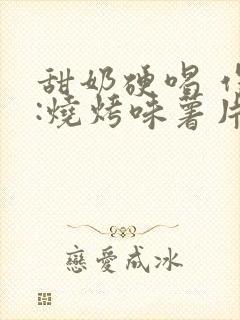 甜奶硬唱
:燒烤味薯片
戀愛成冰